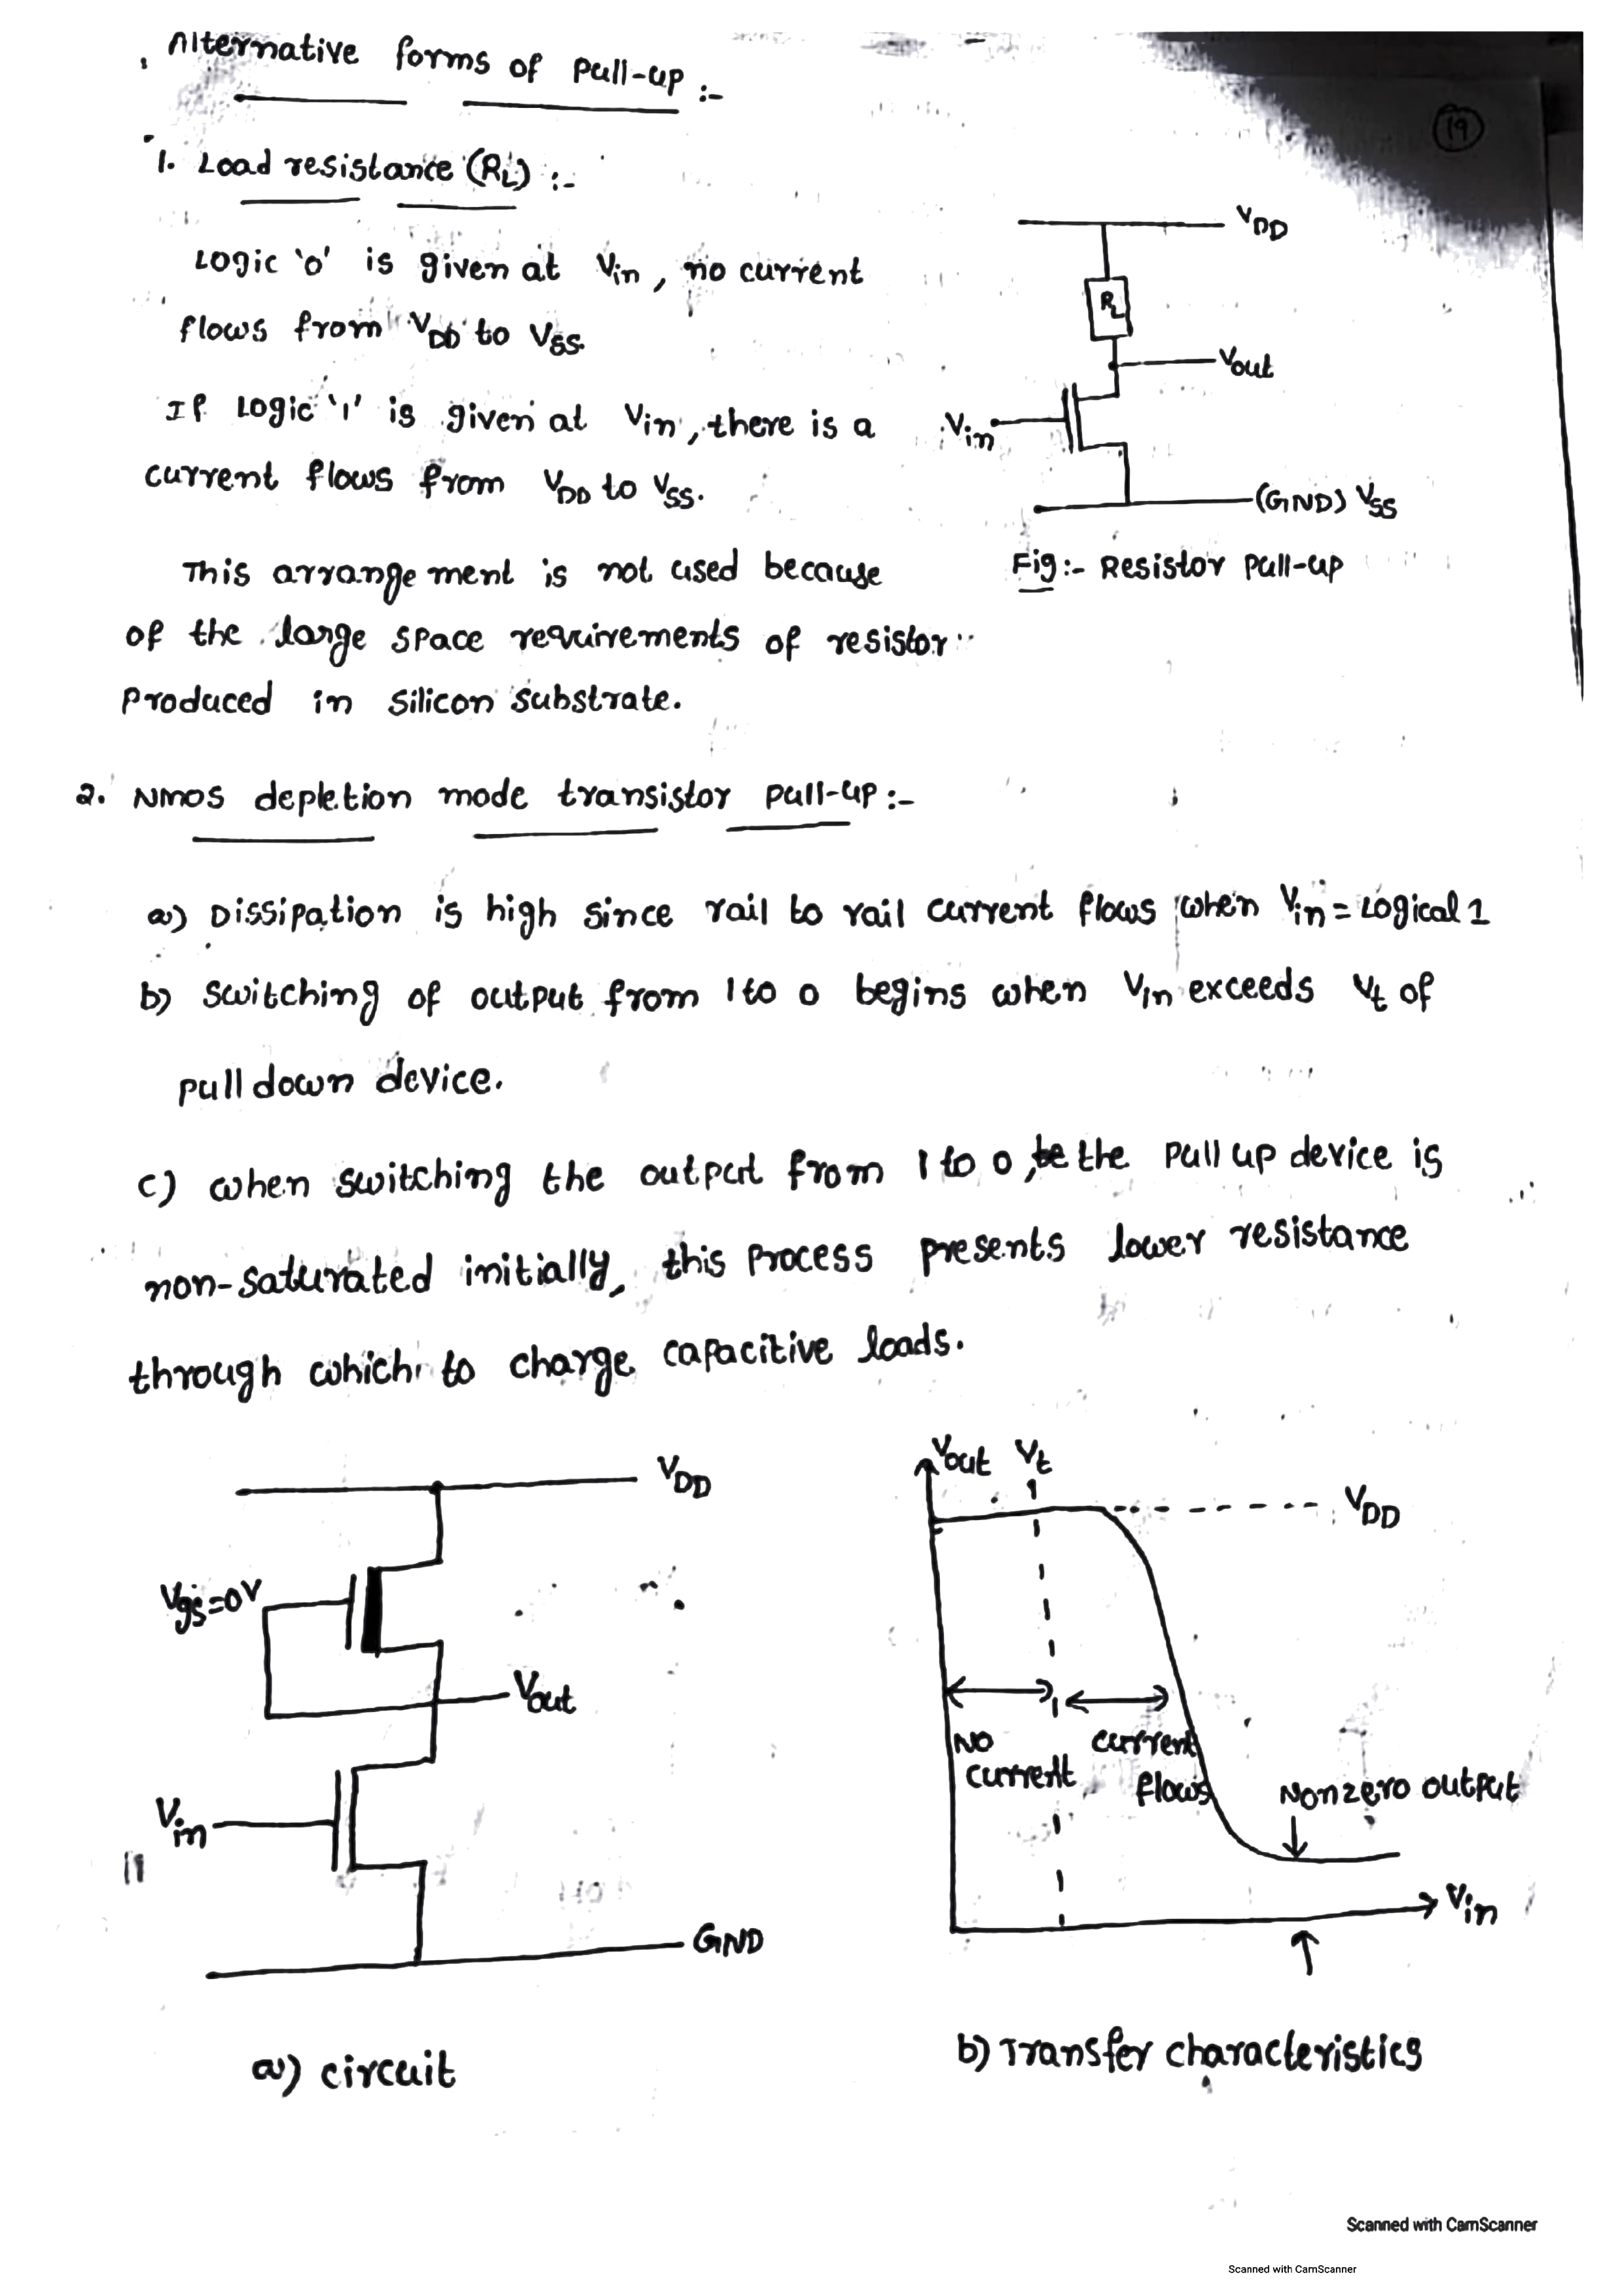 Alternative forms of pull-up :-
19
1. Load resistance (RL) :-
VDD
Logic 'o' is given at Vin, no current
RL
flows from VDD to VSS.
Vout
If Logic '1' is given at Vin, there is a
Vin
current flows from VDD to VSS.
(GND) VSS
This arrangement is not used because
Fig:- Resistor pull-up
of the large space requirements of resistor
produced in silicon substrate.
2. NMOS depletion mode transistor pull-up:-
a) Dissipation is high since rail to rail current flows when Vin = Logical 1
b) switching of output from 1 to 0 begins when Vin exceeds Vt of
pull down device.
c) when switching the output from 1 to 0, the pull up device is
non-saturated initially, this process presents lower resistance
through which to charge capacitive loads.
VDD
Vgs=0V
Vout
Vin
GND
a) circuit
Vout Vt
VDD
No current
current flows
Nonzero output
Vin
b) Transfer characteristics
Scanned with CamScanner
Scanned with CamScanner